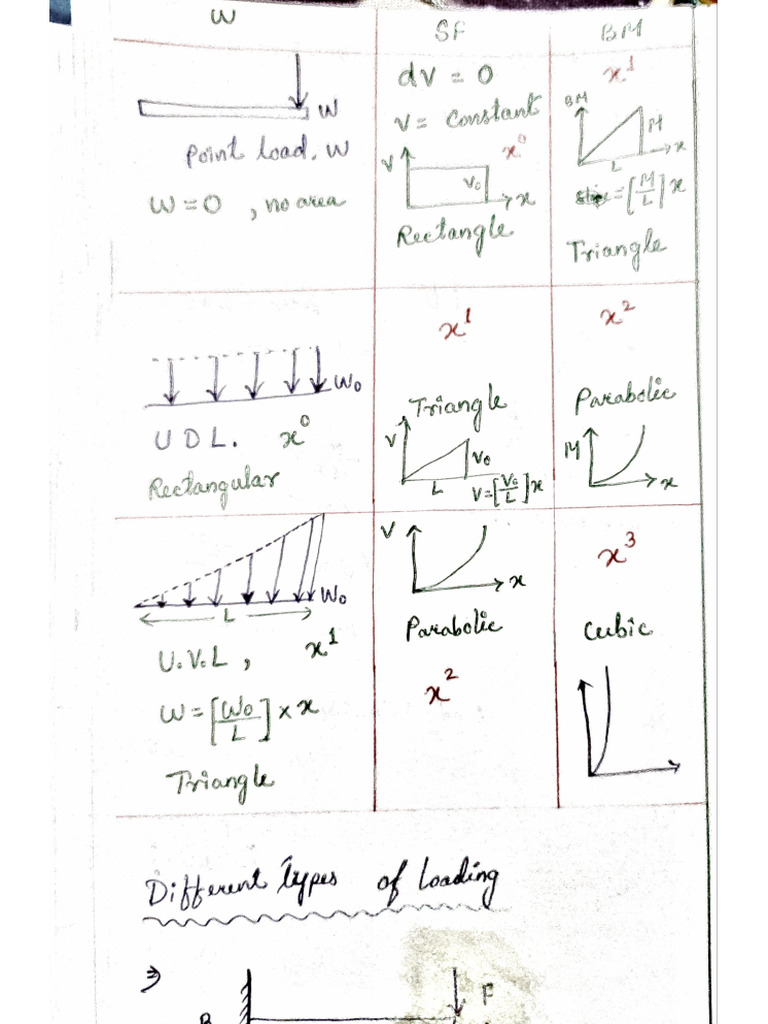 W
SF
BM
W
Point load. W
W = 0 , no area
dV = 0
V = Constant
x⁰
V
V₀
x
Rectangle
x¹
BM
M
L
x
= [M/L] x
Triangle
W₀
UDL. x⁰
Rectangular
x¹
Triangle
V
V₀
L
V = [V₀/L] x
x²
Parabolic
M
x
W₀
L
U.V.L , x¹
W = [W₀/L] × x
Triangle
V
x
Parabolic
x²
x³
Cubic
Different types of loading
F
B